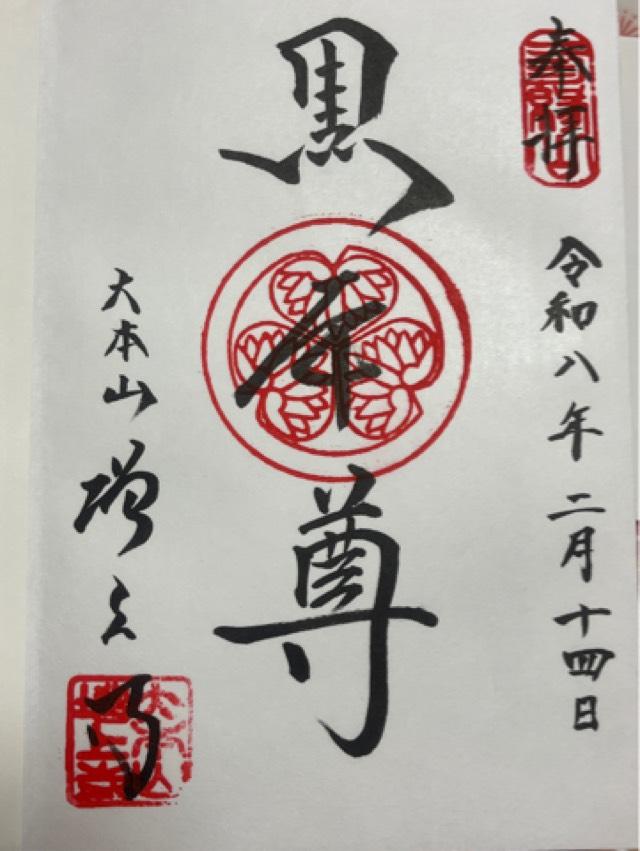 奉拝
令和八年二月十四日
黒本尊
大本山増上寺